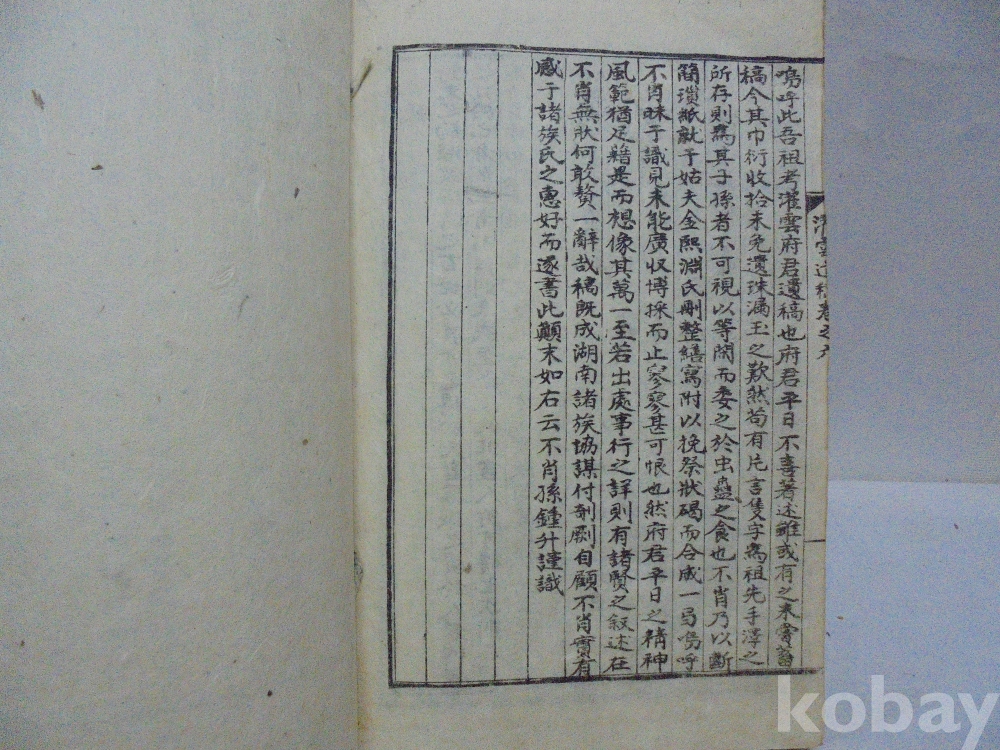 嗚呼此吾祖考濯雲府君遺稿也府君平日不喜著述雖或有之未嘗
稿今其巾衍收拾未免遺珠漏玉之歎然苟有片言隻字爲祖先手澤之
所存則爲其子孫者不可視以等閑而委之於虫蠹之食也不肖乃以斷
簡瑣紙就于姑夫金熙淵氏刪整繕寫附以挽祭狀碣而合成一局嗚呼
不肖昧于識見未能廣收博採而止寥寥甚可恨也然府君平日之精神
風範猶足藉是而想像其萬一至若出處事行之詳則有諸賢之叙述在
不肖無狀何敢贅一辭哉稿旣成湖南諸族協謀付剞劂自顧不肖實有
感于諸族氏之惠好而遂書此顚末如右云不肖孫鍾升謹識
雲 稿卷之
kobay